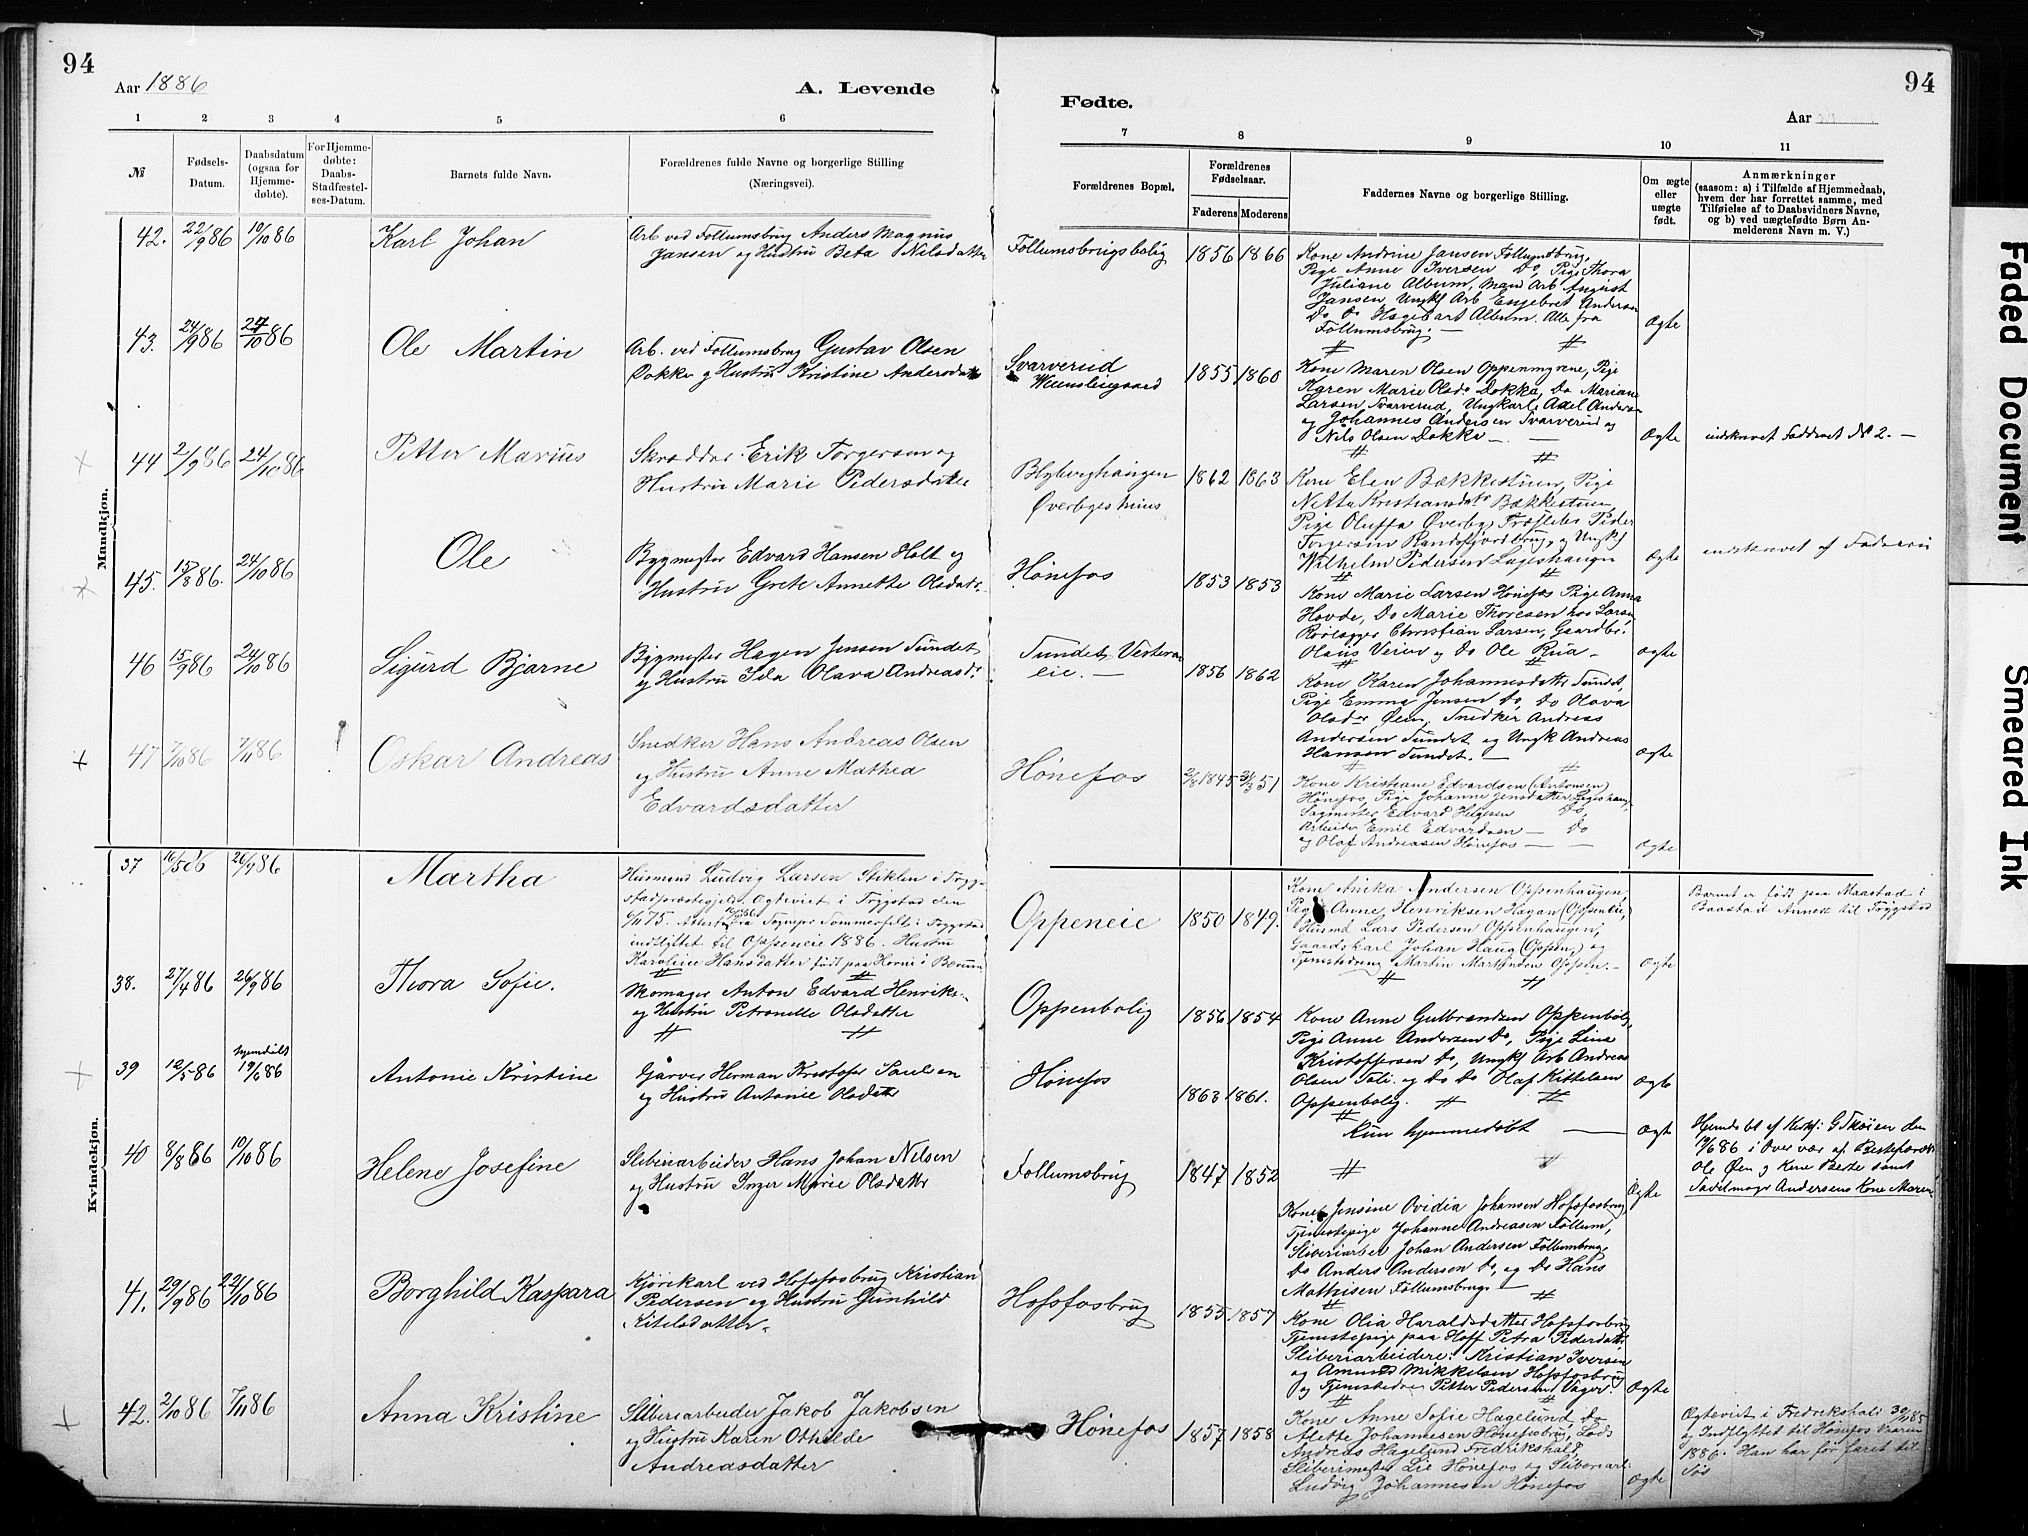 94
Aar 1886
A. Levende
1 2 3 4 5 6
№
Fødsels-Datum.
Daabsdatum (ogsaa for Hjemmedøbte).
For Hjemmedøbte: Daabs-Stadfæstelses-Datum.
Barnets fulde Navn.
Forældrenes fulde Navne og borgerlige Stilling (Næringsvei).
Mandkjøn.
42. 22/9 86 10/10 86 Karl Johan
Arb ved Follumsbrug Anders Magnus
Jansen og Hustru Beta Nilsdatter
43. 24/9 86 24/10 86 Ole Martin
Arb. ved Follumsbrug Gustav Olsen
Dokka og Hustru Kristine Andersdatt
44 2/9 86 24/10 86 Petter Marius
Skrædder Erik Torgersen og
Hustru Marie Pedersdatter
45. 15/8 86. 24/10 86 Ole
Bygmester Edvard Hansen Holt og
Hustru Grete Annette Olsdatr.
46 15/9 86 24/10 86 Sigurd Bjarne
Bygmester Hagen Jensen Sundet
og Hustru Ida Olava Andreasdr
47 7/10 86 7/11 86 Oskar Andreas
Snedker Hans Andreas Olsen
og Hustru Anne Mathea
Edvardsdatter
Kvindekjøn.
37 16/5 86 26/9 86 Martha
Husmand Ludvig Larsen Stiklen i Tryg-
stad Ægteviet i Trygstad den
6/11 75.
indflyttet til Oppeneie 1886. Hustru
Karoline Hansdatter født paa Hovne i Bærum
38. 27/4 86 26/9 86 Thora Sofie.
Skomager Anton Edvard Henriks.
og Hustru Petronelle Olsdatter
39 12/5 86 hjemdøbt 19/6 86 Antonie Kristine
Garver Herman Kristofer Paulsen
og Hustru Antonie Olsdatter
40 8/8 86 10/10 86 Helene Josefine
Sliberiarbeider Hans Johan Nilsen
og Hustru Inger Marie Olsdatter
41. 29/9 86 24/10 86 Borghild Kaspara
Kjørekarl ved Hofsfosbrug Kristian
Pedersen og Hustru Gunhild
Kitelsdatter.
42. 2/10 86 7/11 86 Anna Kristine
Sliberiarbeider Jakob Jakobsen
og Hustru Karen Othilde
Andreasdatter
94
Fødte.
Aar
7 8 9 10 11
Forældrenes Bopæl.
Forældrenes Fødselsaar.
Faderens Moderens
Faddernes Navne og borgerlige Stilling.
Om ægte eller uægte født.
Anmærkninger
(saasom: a) i Tilfælde af Hjemmedaab, hvem der har forrettet samme, med Tilføielse af to Daabsvidners Navne, og b) ved uægtefødte Børn Anmelderens Navn m. V.)
Follumsbrugsbolig 1856 1866
Kone Andrine Jansen Follumsbrug,
Pige Anne Iversen Do, Pige Thora
Juliane Album, Mand Arb August
Jansen, Ungkl Arb Engebret Andersen
Do Do Hagebart Album. Alle fra
Follumsbrug. —
Ægte
Svarverud 1855 1860
Kone Maren Olsen Oppenmyrene, Pige
Karen Marie Olsdr Dokka, Do Mariane
Larsen Svarverud, Ungkarl: Adel Andersen
og Johannes Andersen Svarverud og
Nils Olsen Dokka —
Ægte indskrevet Faddreat № 2. —
Øverbyes 1862 1863
Kone Elen Bækkestuen, Pige
Netta Kristiansdatr Bækkestuen
Pige Oluffa Øverby, Træsleber Peder
Torgersen Randsfjordbrug, og Ungkl
Wilhelm Pedersen
Ægte
Hønefos 1853 1853
Kone Marie Larsen Hønefos Pige Anna
Hovde, Do Marie Thoresen hos Larsen
Christian Larsen, Gaardbr.
Olaus Veien og Do Ole Rua —
Ægte
Sundet Vesteren
eie. — 1856 1862
Kone Karen Johannesdatter Sundet,
Pige Emma Jensen Do, Do Olava
Olsdr Øen, Snedker Andreas
Andersen Sundet og Ungk Andreas
Hansen Sundet. —
Ægte
Hønefos 2/8 1845 24/3 51
Kone Kristiane Edvardsen (Antonsen)
Hønefos, Pige Johanne Jensdatter
Sagmester Edvard Helgesen Do
Arbeider Emil Edvardsen — Do
og Olaf Andreasen Hønefos —
Ægte
Oppeneie 1850 1849.
Kone Anika Andersen Oppenhaugen,
Pige Anne Henriksen Hagan (Oppeneie),
Husmd Lars Pedersen Oppenhaugen,
Gaardskarl Johan Haug (Oppen) og
Tjenestedreng Martin Oppen. —
Ægte
Barnet er født paa Maastad i
Baastad Annex til Trygstad
Oppenbolig 1856 1854
Kone Anne Gulbrandsen Oppenbolig,
Pige Anne Andersen Do, Pige Lina
Kristoffersen Do, Ungkl Arb Andreas
Olsen og Do Do Olaf Kittelsen
Oppenbolig.
Ægte
Hønefos 1863 1861.
Kun hjemmedøbt —
Ægte
Hjemdøbt af Kirks: G Skøien den
19/6 86 i Overvær af Bestefarend
Ole Øen og Kone Berte samt
Sadelmagr Andersens Kone Maren
Follumsbrug 1847 1852
Kone Jensine Ovidia Johansen Hofsfosbrug
Tjenestepige Johanne Andreasen Follum,
Sliberiarbei Johan Andersen Follumbrug,
Do Anders Andersen Do, og Do Hans
Mathisen Follumsbrug. —
Ægte
Hofsfosbrug 1855 1857
Kone Olia Haraldsdatter Hofsfosbrug
Tjenestepige paa Hoff Petra Pedersdatter
Sliberiarbeidere: Kristian Iversen
og Amund Mikkelsen Hofsfosbrug
og Tjenestedreng Petter Pedersen Vager.
Ægte
Hønefos 1857 1858
Kone Anne Sofie Hagelund, Do
Alette Johannesen Hønefosbrug, Lods
Andreas Hagelund Fredrikshald,
Sliberimester Lie Hønefos og Sliberiarb:
Ludvig Johannesen Hønefos
Ægte
Ægteviet i Fredrikshald 30/11 85
og Indflyttet til Hønefos Vaaren
1886. Han har før faret til
Søs
Faded Document
Smeared Ink